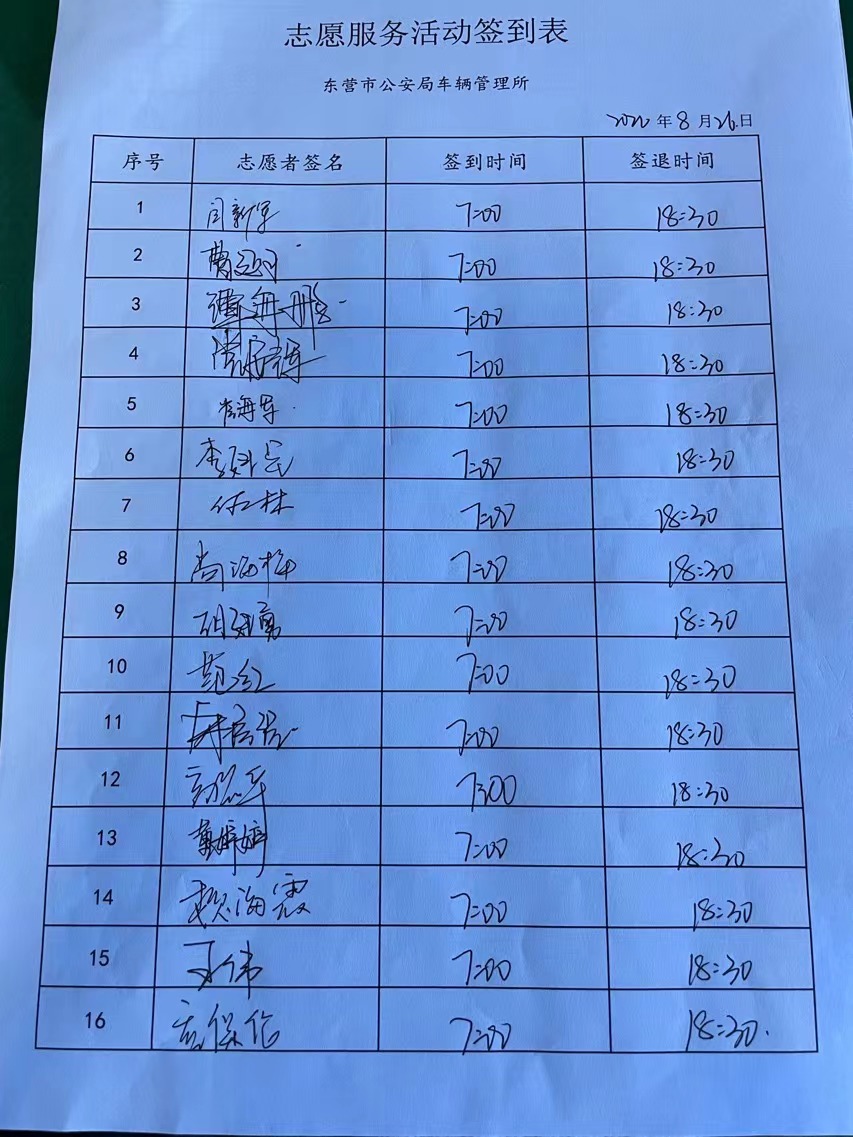 志愿服务活动签到表
东营市公安局车辆管理所
2022年8月26日
序号 志愿者签名 签到时间 签退时间
1 闫新军 7:00 18:30
2 曹 7:00 18:30
3 7:00 18:30
4 7:00 18:30
5 李海军 7:00 18:30
6 李 7:00 18:30
7 林 7:00 18:30
8 尚海梅 7:00 18:30
9 胡 勇 7:00 18:30
10 范红 7:00 18:30
11 7:00 18:30
12 7:00 18:30
13 黄婷婷 7:00 18:30
14 赵海霞 7:00 18:30
15 王伟 7:00 18:30
16 7:00 18:30